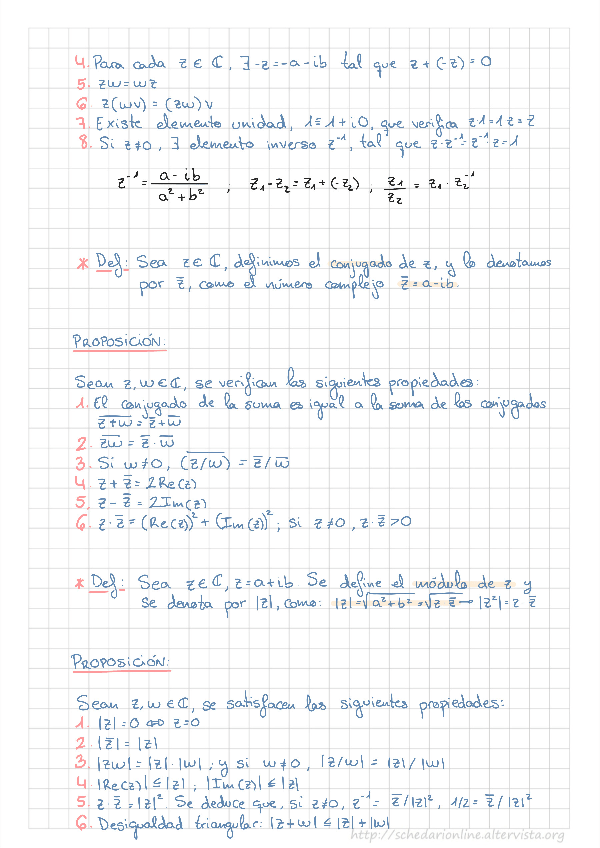 4. Para cada z ∈ ℂ, ∃ -z = -a - ib tal que z + (-z) = 0
5. zw = wz
6 z(wv) = (zw)v
7. Existe elemento unidad, 1 ≡ 1 + i0, que verifica z·1 = 1·z = z
8. Si z ≠ 0, ∃ elemento inverso z⁻¹, tal que z·z⁻¹ = z⁻¹·z = 1
z⁻¹ = (a - ib)/(a² + b²) , z₁ - z₂ = z₁ + (-z₂) , z₁/z₂ = z₁ · z₂⁻¹
* Def: Sea z ∈ ℂ, definimos el conjugado de z, y lo denotamos
por z̄, como el número complejo z̄ = a - ib.
PROPOSICIÓN:
Sean z, w ∈ ℂ, se verifican las siguientes propiedades:
1. El conjugado de la suma es igual a la suma de los conjugados
z̅+̅w̅ = z̄ + w̄
2. z̅w̅ = z̄ · w̄
3. Si w ≠ 0, (z̅/̅w̅) = z̄ / w̄
4. z + z̄ = 2Re(z)
5. z - z̄ = 2Im(z)
6. z · z̄ = (Re(z))² + (Im(z))² ; si z ≠ 0, z · z̄ > 0
* Def: Sea z ∈ ℂ, z = a + ib Se define el módulo de z y
se denota por |z|, como: |z| = √(a² + b²) = √(z z̄) → |z²| = z z̄
PROPOSICIÓN:
Sean z, w ∈ ℂ, se satisfacen las siguientes propiedades:
1. |z| = 0 ⇔ z = 0
2. |z̄| = |z|
3. |zw| = |z| · |w| ; y si w ≠ 0, |z/w| = |z| / |w|
4. |Re(z)| ≤ |z| ; |Im(z)| ≤ |z|
5. z · z̄ = |z|². Se deduce que, si z ≠ 0, z⁻¹ = z̄/|z|², 1/z = z̄/|z|²
6. Desigualdad triangular: |z + w| ≤ |z| + |w|
http://schedarionline.altervista.org